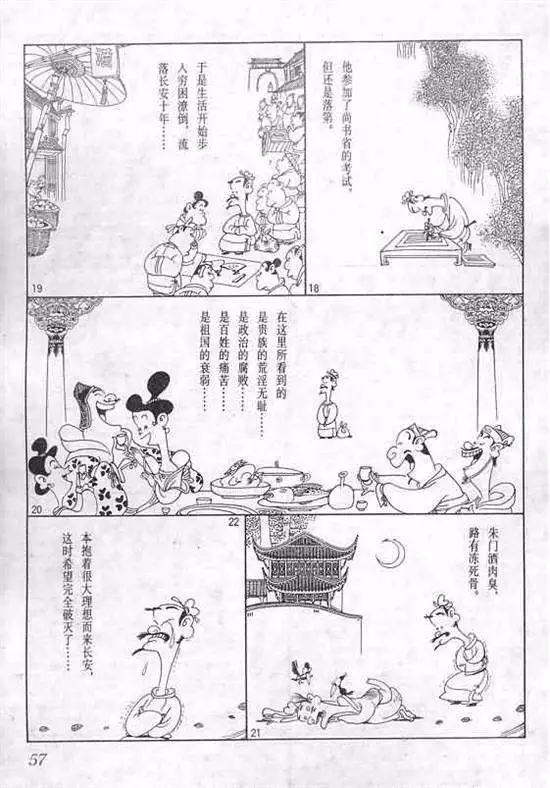 他参加了尚书省的考试，
但还是落第。
18
于是生活开始步
入穷困潦倒，流
落长安十年……
19
在这里所看到的
是贵族的荒淫无耻……
是政治的腐败……
是百姓的痛苦……
是祖国的衰弱……
20
朱门酒肉臭，
路有冻死骨。
21
本抱着很大理想而来长安，
这时希望完全破灭了……
22
57